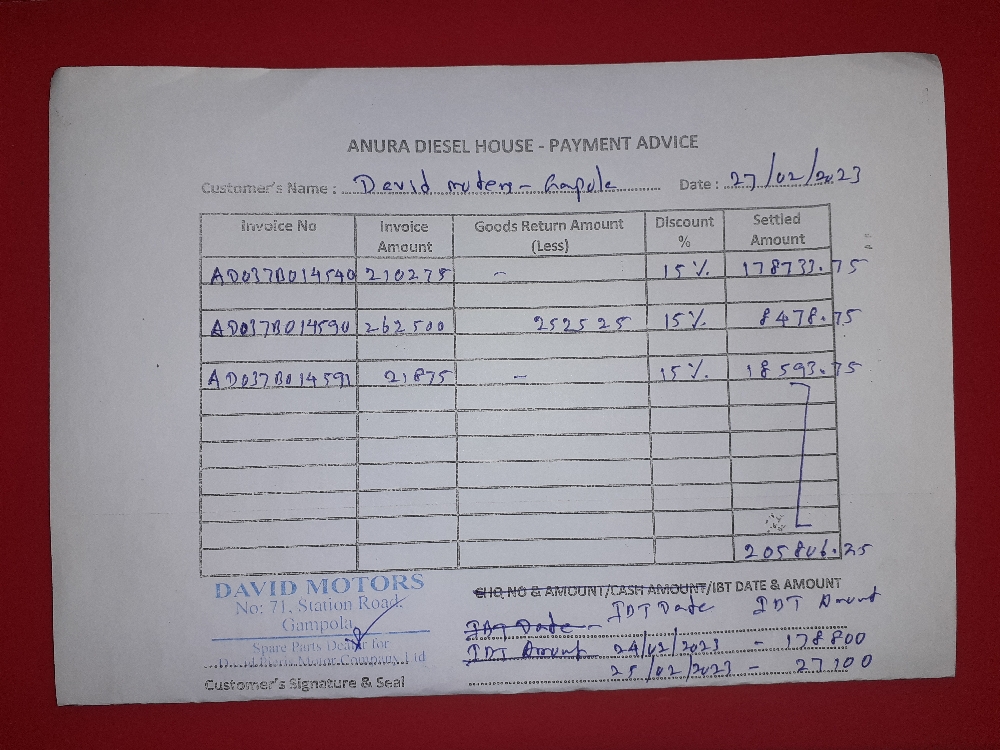 ANURA DIESEL HOUSE - PAYMENT ADVICE
Customer's Name : David motors - Gampola Date : 27/02/2023
Invoice No Invoice Amount Goods Return Amount (Less) Discount % Settled Amount
AD037B014540 210275 - 15% 178733.75
AD037B014590 262500 252525 15% 8478.75
AD037B014591 21875 - 15% 18593.75
205806.25
DAVID MOTORS
No: 71, Station Road,
Gampola
Spare Parts Dealer for
David Pieris Motor Company Ltd
Customer's Signature & Seal
CHQ NO & AMOUNT/CASH AMOUNT/IBT DATE & AMOUNT
IBT Date - IBT Date IBT Amount
IBT Amount 24/02/2023 - 178800
25/02/2023 - 27100